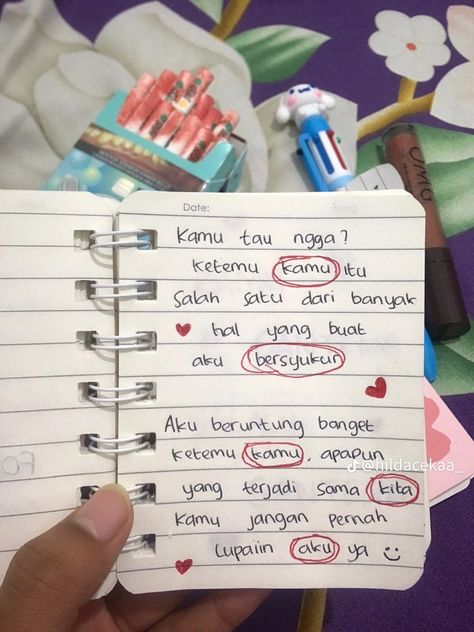 Date:
Kamu tau ngga?
Ketemu kamu itu
Salah satu dari banyak
hal yang buat
aku bersyukur
Aku beruntung banget
ketemu kamu. apapun
@hildacekaa_
yang terjadi sama kita
Kamu jangan pernah
Lupaiin aku ya
OMG